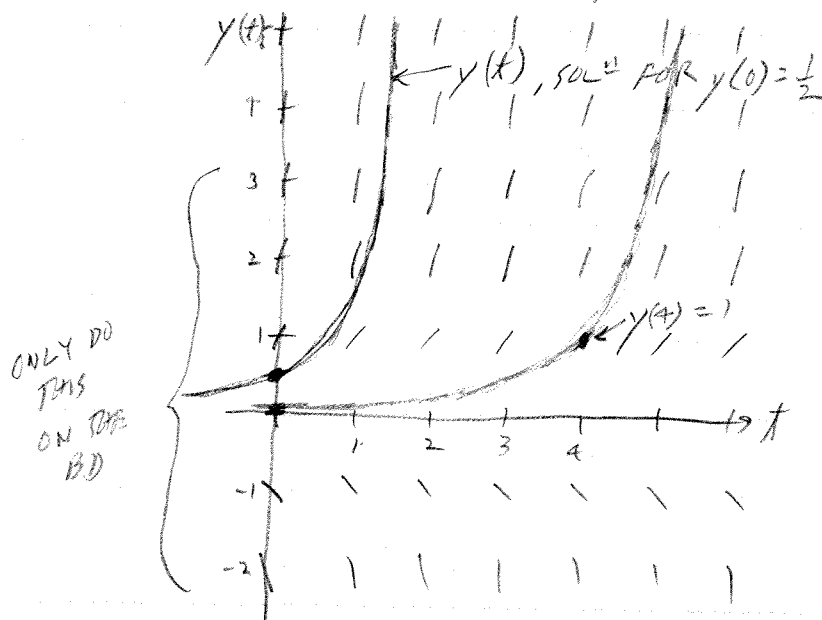 y(t)
y(t), SOLⁿ FOR y(0) = 1/2
4
3
2
1
y(4) = 1
ONLY DO
THIS
ON THE
BD
t
1
2
3
4
-1
-2